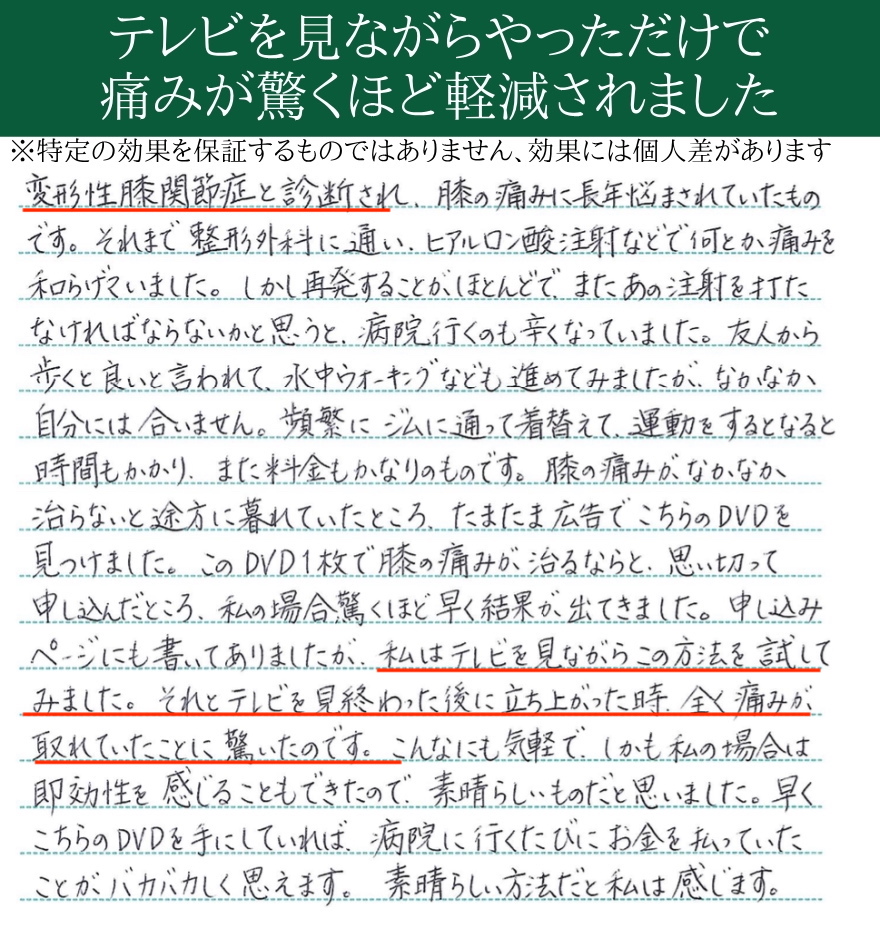 テレビを見ながらやっただけで
痛みが驚くほど軽減されました
※特定の効果を保証するものではありません、効果には個人差があります
変形性膝関節症と診断され、膝の痛みに長年悩まされていたもの
です。それまで整形外科に通い、ヒアルロン酸注射などで何とか痛みを
和らげていました。しかし再発することがほとんどで、またあの注射を打た
なければならないかと思うと、病院行くのも辛くなっていました。友人から
歩くと良いと言われて、水中ウォーキングなども進めてみましたが、なかなか
自分には合いません。頻繁にジムに通って着替えて、運動をするとなると
時間もかかり、また料金もかなりのものです。膝の痛みがなかなか
治らないと途方に暮れていたところ、たまたま広告でこちらのDVDを
見つけました。このDVD1枚で膝の痛みが治るならと、思い切って
申し込んだところ、私の場合驚くほど早く結果が出てきました。申し込み
ページにも書いてありましたが、私はテレビを見ながらこの方法を試して
みました。それとテレビを見終わった後に立ち上がった時、全く痛みが
取れていたことに驚いたのです。こんなにも気軽で、しかも私の場合は
即効性を感じることもできたので、素晴らしいものだと思いました。早く
こちらのDVDを手にしていれば、病院に行くたびにお金を払っていた
ことがバカバカしく思えます。 素晴らしい方法だと私は感じます。